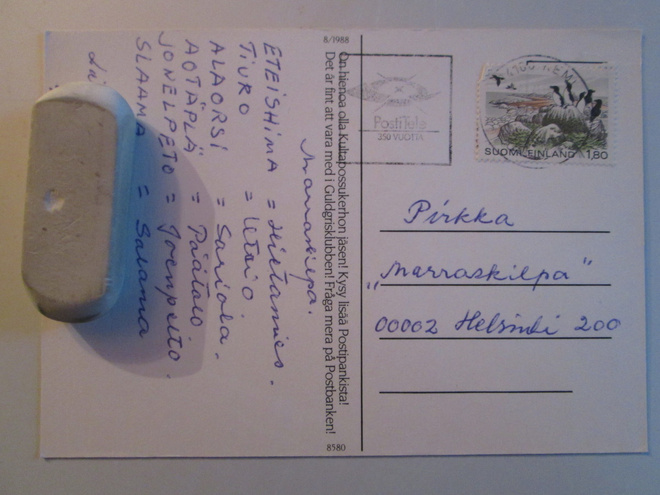 8/1988
On hienoa olla Kultapossukerhon jäsen! Kysy lisää Postipankista!
Det är fint att vara med i Guldgrisklubben! Fråga mera på Postbanken!
8580
Marraskilpa.
ETEISHIMA = Hietamies.
TIURO =
ALAORSI = Sariola.
AOTÄPLÄ = Päätalo
JONELPETO = Joenpelto.
SLAAMA = Salama
PostiTele
350 VUOTTA
SUOMI FINLAND 1,80
Pirkka
„Marraskilpa"
00002 Helsinki 200